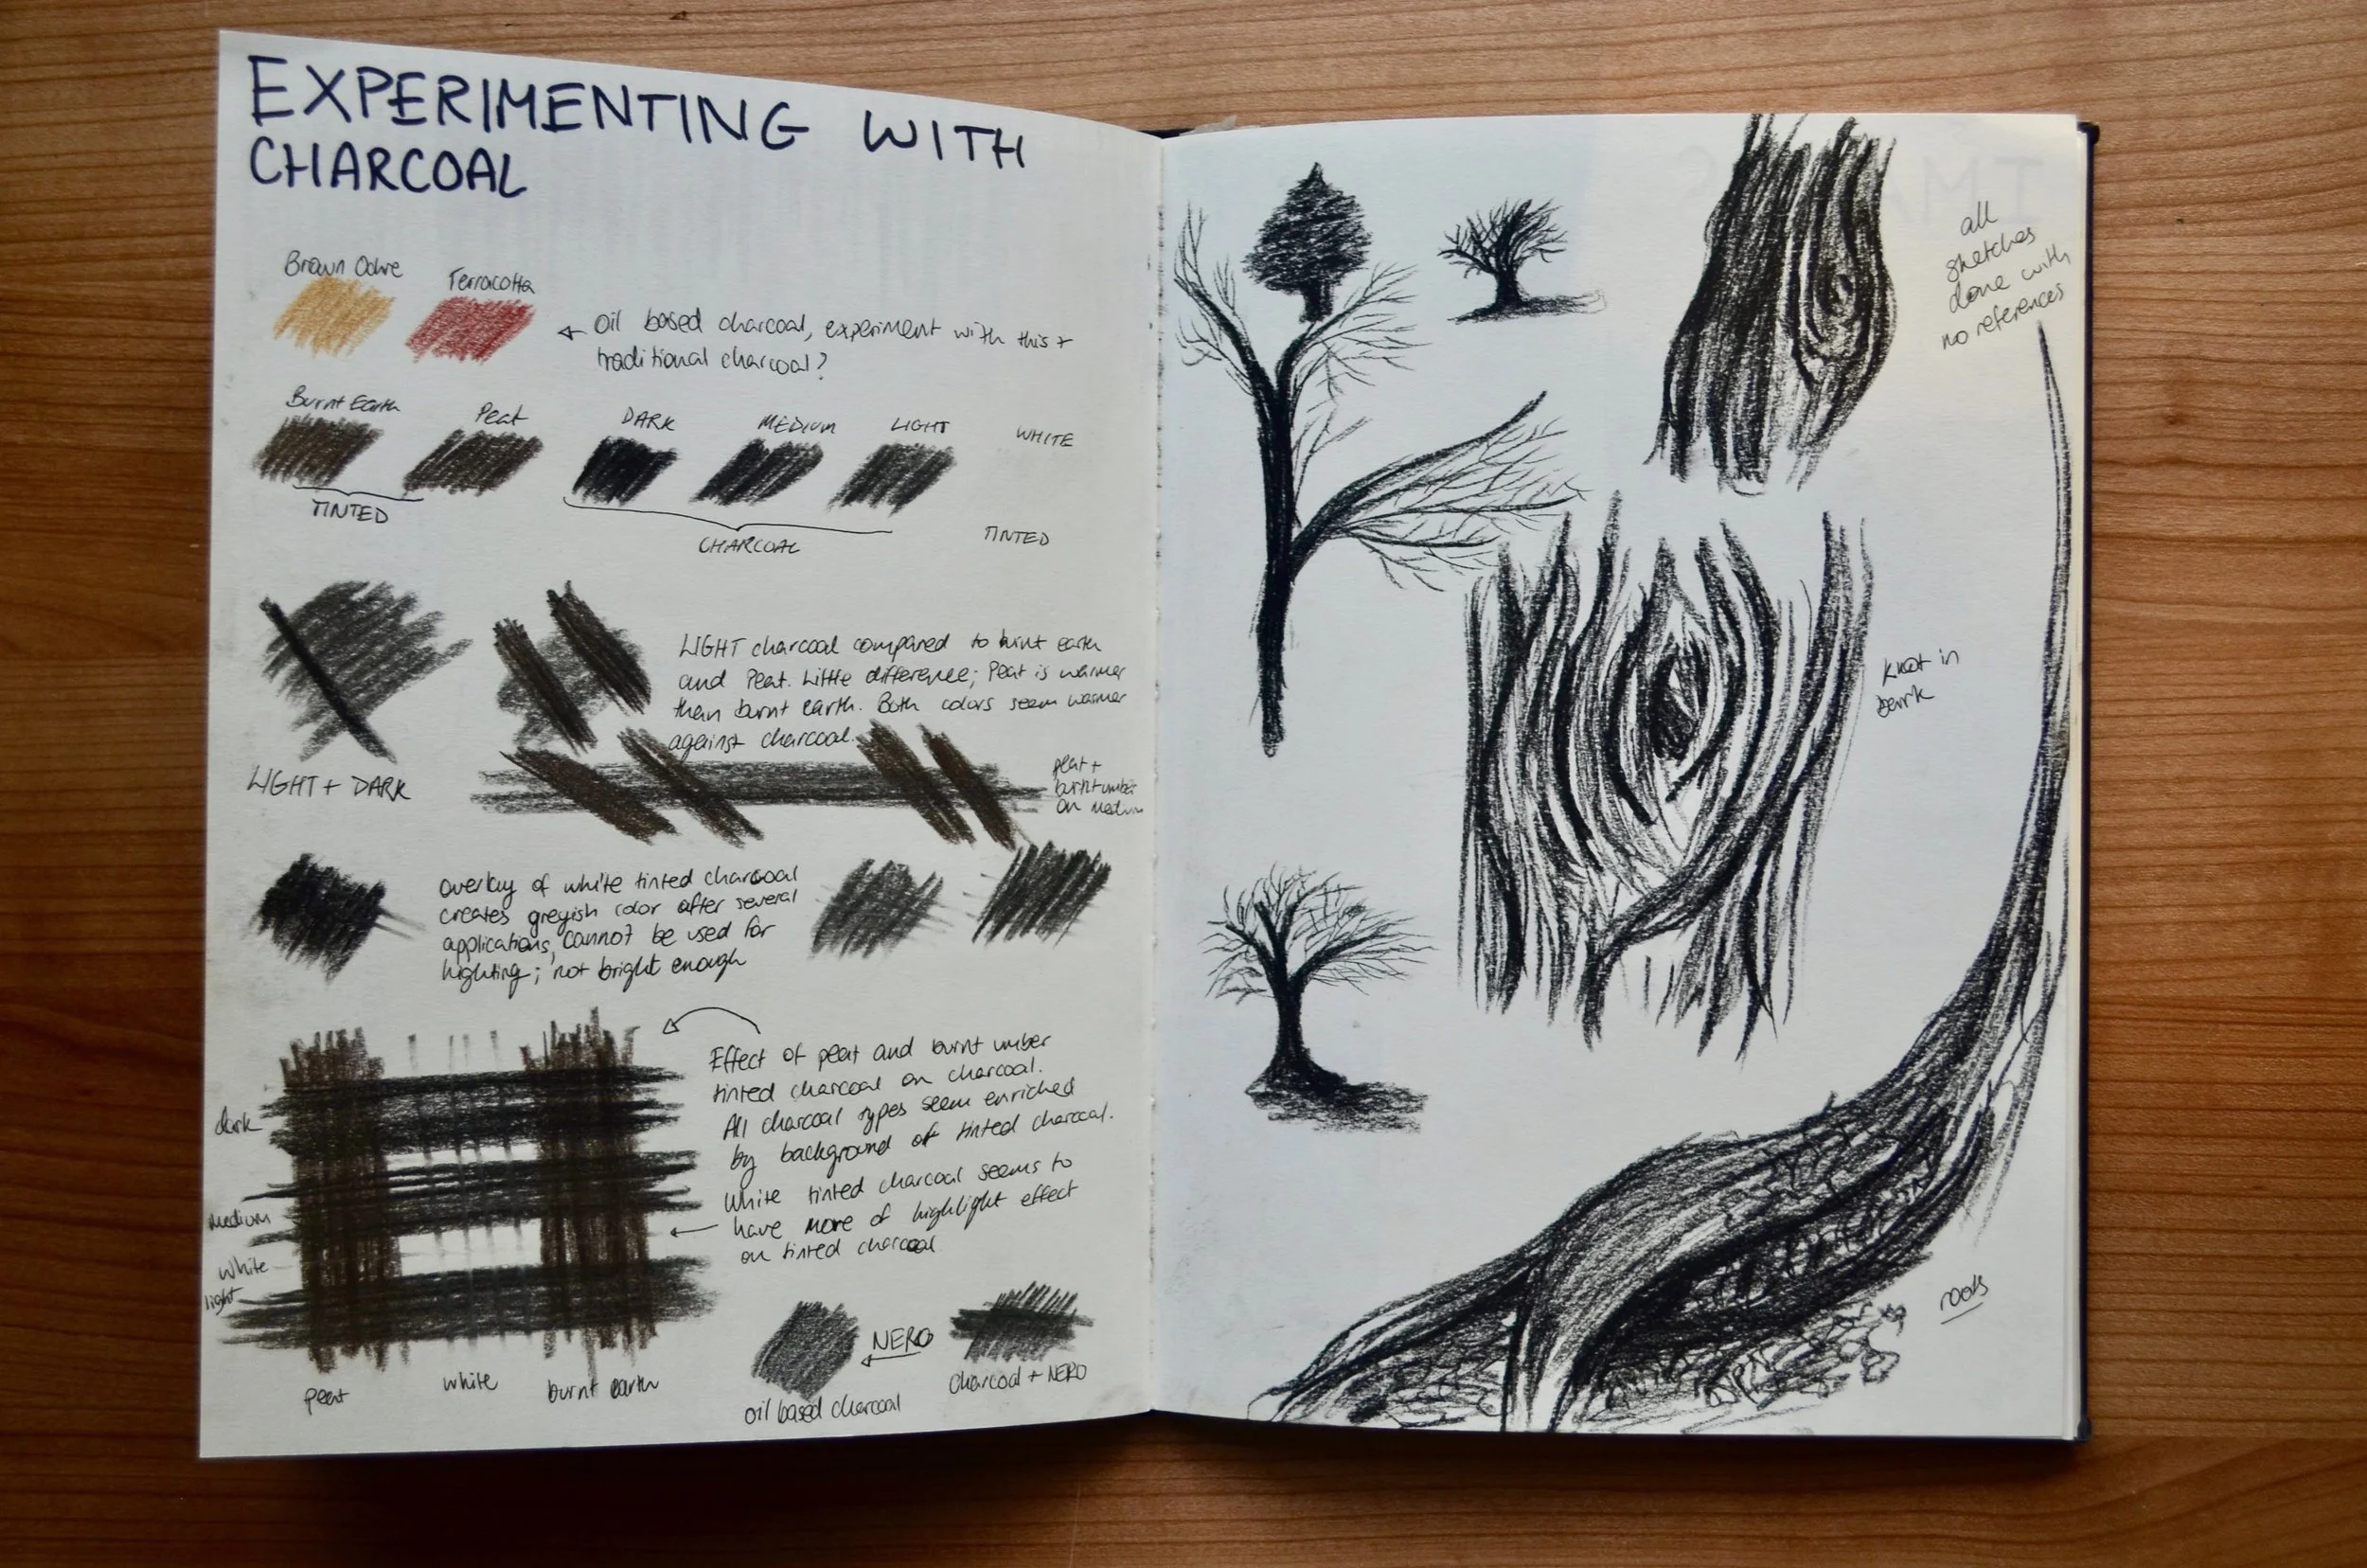 EXPERIMENTING WITH
CHARCOAL
Brown Ochre
Terracotta
← Oil based charcoal, experiment with this +
traditional charcoal?
Burnt Earth
Peat
DARK
MEDIUM
LIGHT
WHITE
TINTED
CHARCOAL
TINTED
LIGHT + DARK
LIGHT charcoal compared to burnt earth
and Peat. Little difference; Peat is warmer
than burnt earth. Both colors seem warmer
against charcoal.
peat +
burnt umber
on medium
overlay of white tinted charcoal
creates greyish color after several
applications, cannot be used for
highting; not bright enough
Effect of peat and burnt umber
tinted charcoal on charcoal.
All charcoal types seem enriched
by background of tinted charcoal.
White tinted charcoal seems to
have more of highlight effect
on tinted charcoal
dark
medium
white
light
peat
white
burnt earth
NERO
oil based charcoal
charcoal + NERO
all
sketches
done with
no references
knot in
bark
roots